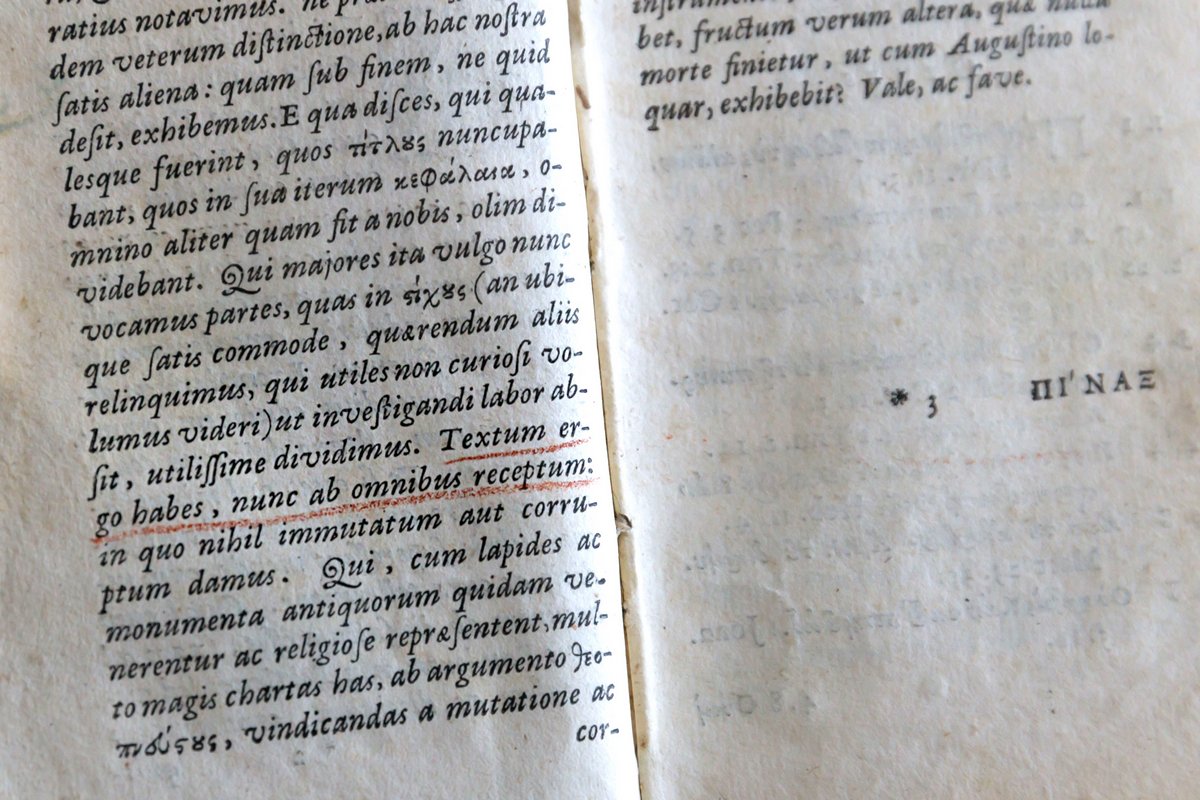 ratius notavimus. ne
dem veterum diſtinctione, ab hac noſtra
ſatis aliena: quam ſub finem, ne quid
deſit, exhibemus. E qua diſces, qui qua-
lesque fuerint, quos τίτλȣς nuncupa-
bant, quos in ſua iterum κεφάλαια, o-
mnino aliter quam fit a nobis, olim di-
videbant. Qui majores ita vulgo nunc
vocamus partes, quas in ςίχȣς (an ubi-
que ſatis commode, quærendum aliis
relinquimus, qui utiles non curioſi vo-
lumus videri) ut inveſtigandi labor ab-
ſit, utiliſſime dividimus. Textum er-
go habes, nunc ab omnibus receptum:
in quo nihil immutatum aut corru-
ptum damus. Qui, cum lapides ac
monumenta antiquorum quidam ve-
nerentur ac religioſe repræſentent, mul-
to magis chartas has, ab argumento θεο-
πνεύςȣς, vindicandas a mutatione ac
cor-
bet, fructum verum altera, quæ nulla
morte finietur, ut cum Auguſtino lo-
quar, exhibebit? Vale, ac fave.
* 3 ΠΙ'ΝΑΞ